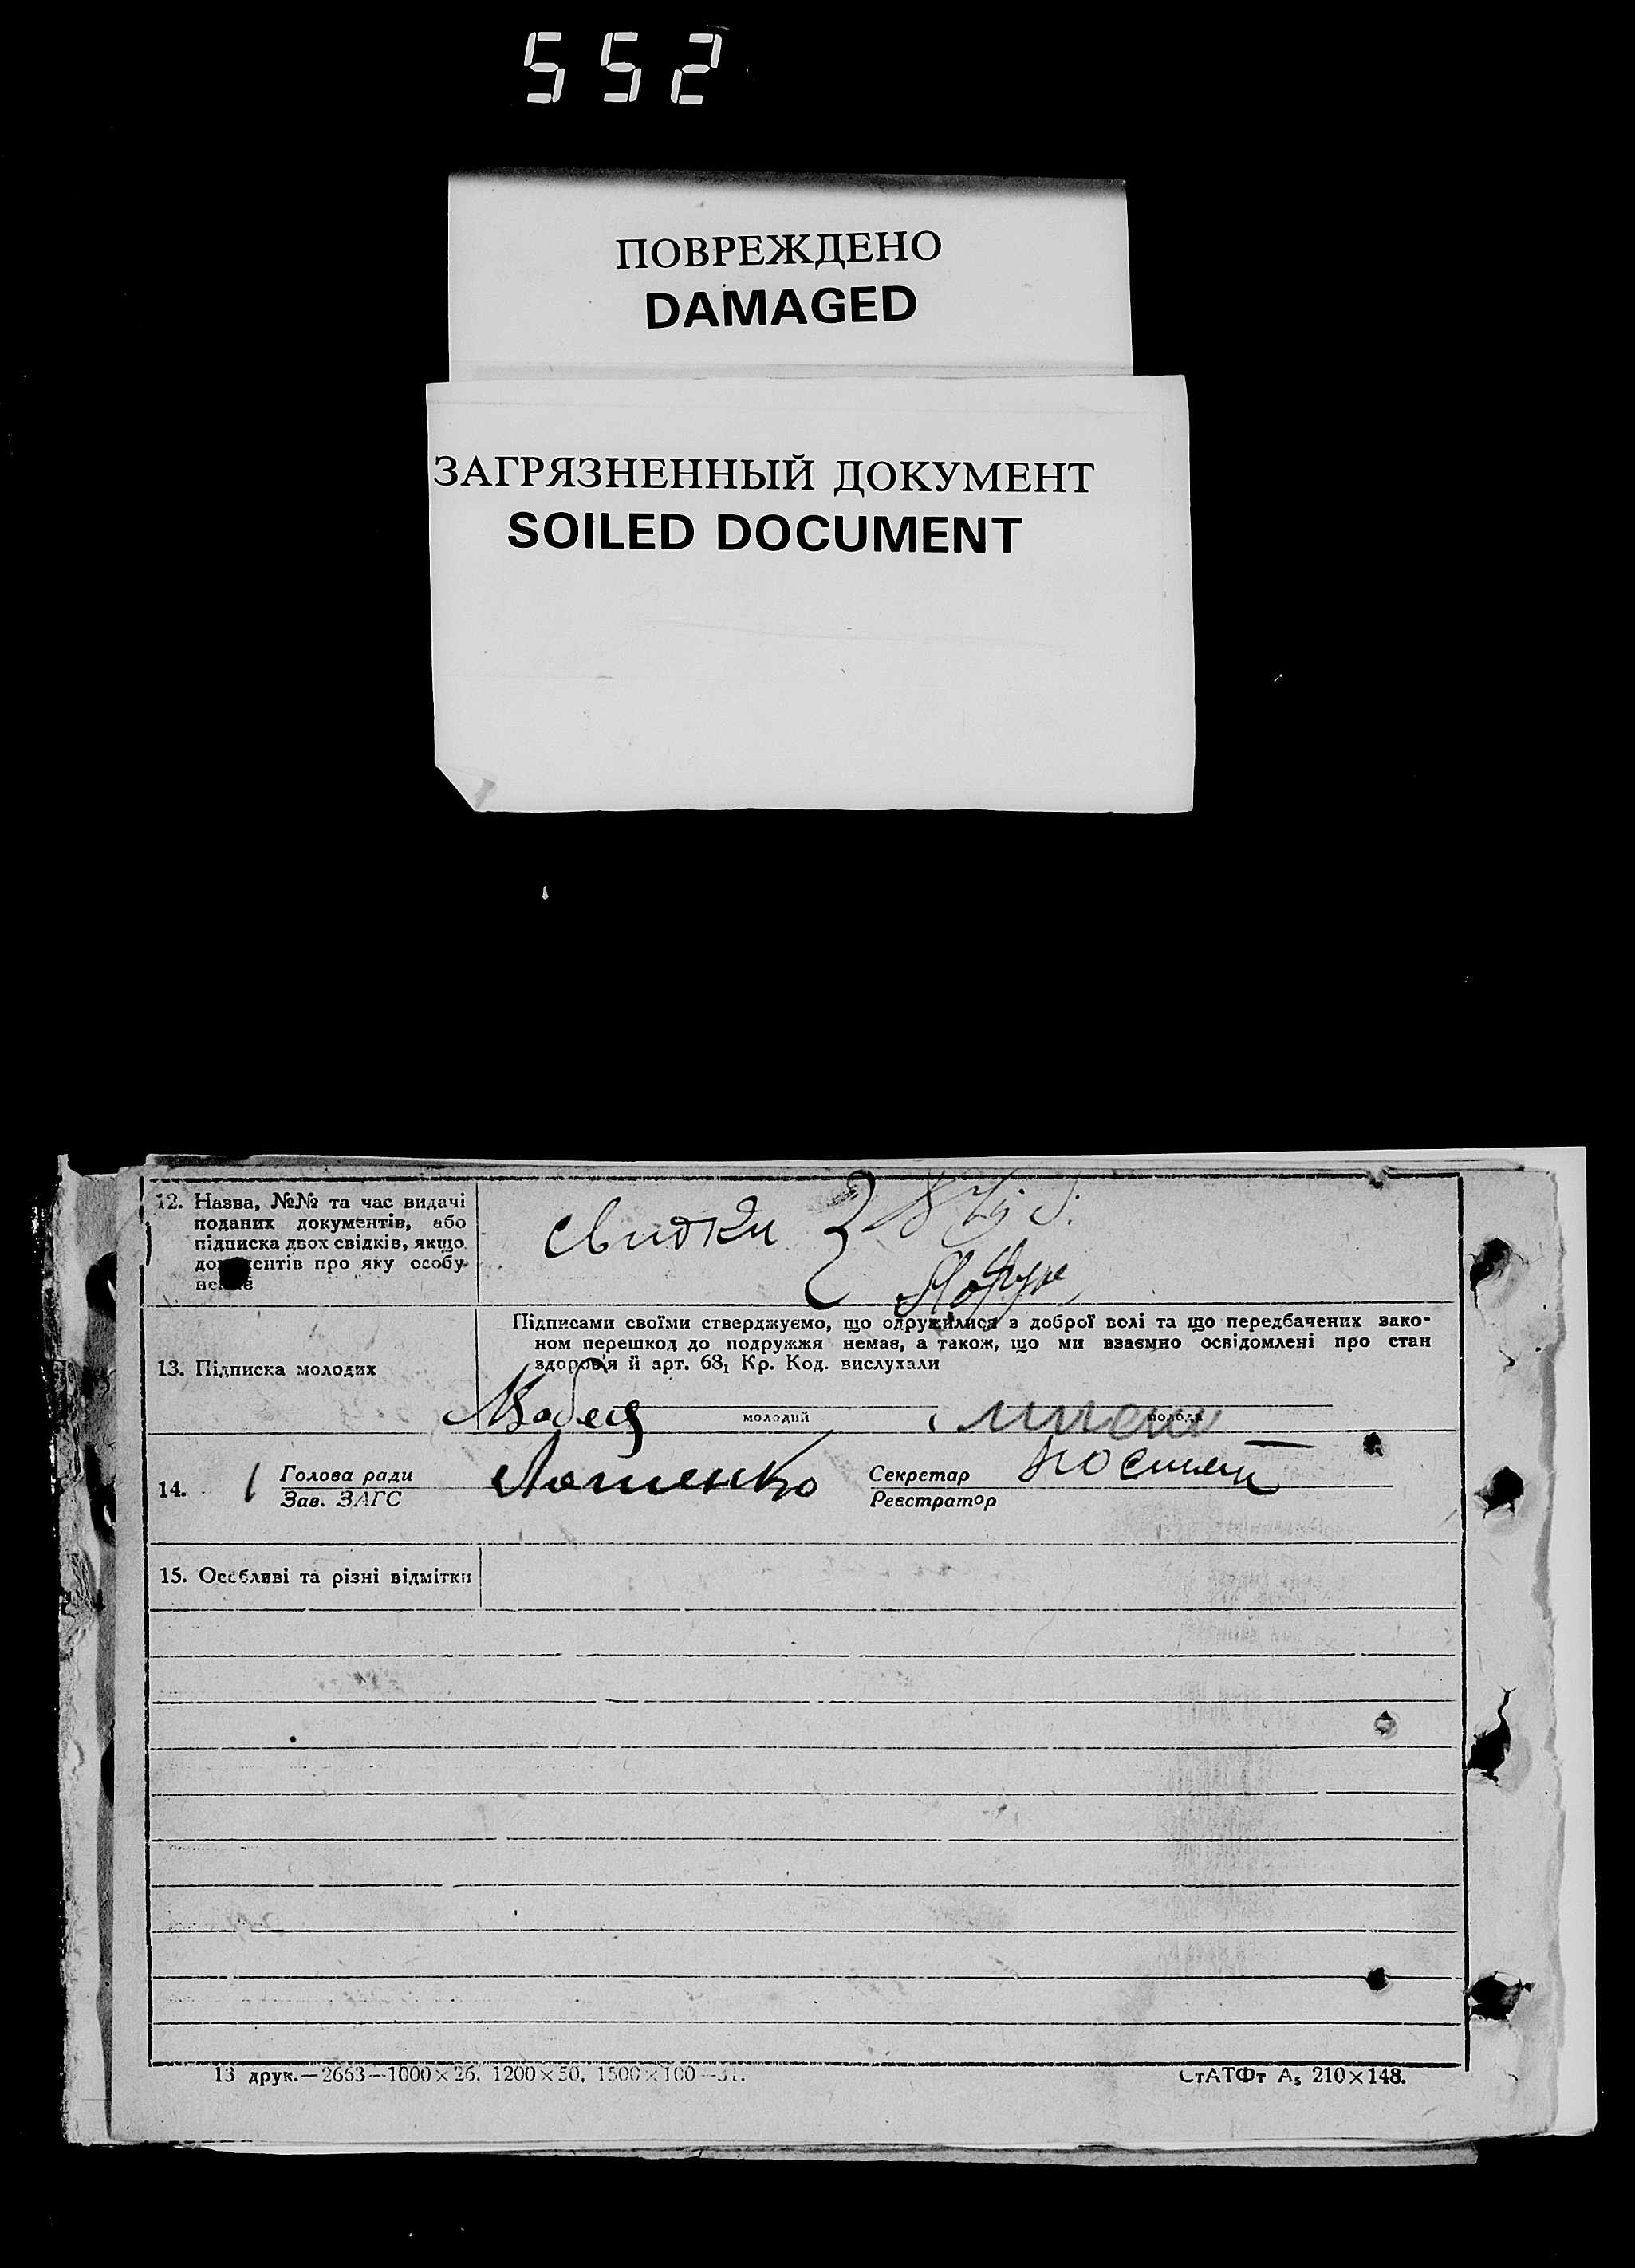 552
ПОВРЕЖДЕНО
DAMAGED
ЗАГРЯЗНЕННЫЙ ДОКУМЕНТ
SOILED DOCUMENT
12. Назва, №№ та час видачі
поданих документів, або
підписка двох свідків, якщо
про яку особу
свидки
Підписами своїми стверджуємо, що одружилися з доброї волі та що передбачених зако-
ном перешкод до подружжя немає, а також, що ми взаємно освідомлені про стан
здоров'я й арт. 68₁ Кр. Код. вислухали
13. Підписка молодих
молодий молода
14. Голова ради
Зав. ЗАГС
Секретар
Реєстратор
15. Особливі та різні відмітки
13 друк.—2663—1000×26, 1200×50, 1500×100—31.
СтАТФт А₅ 210×148.